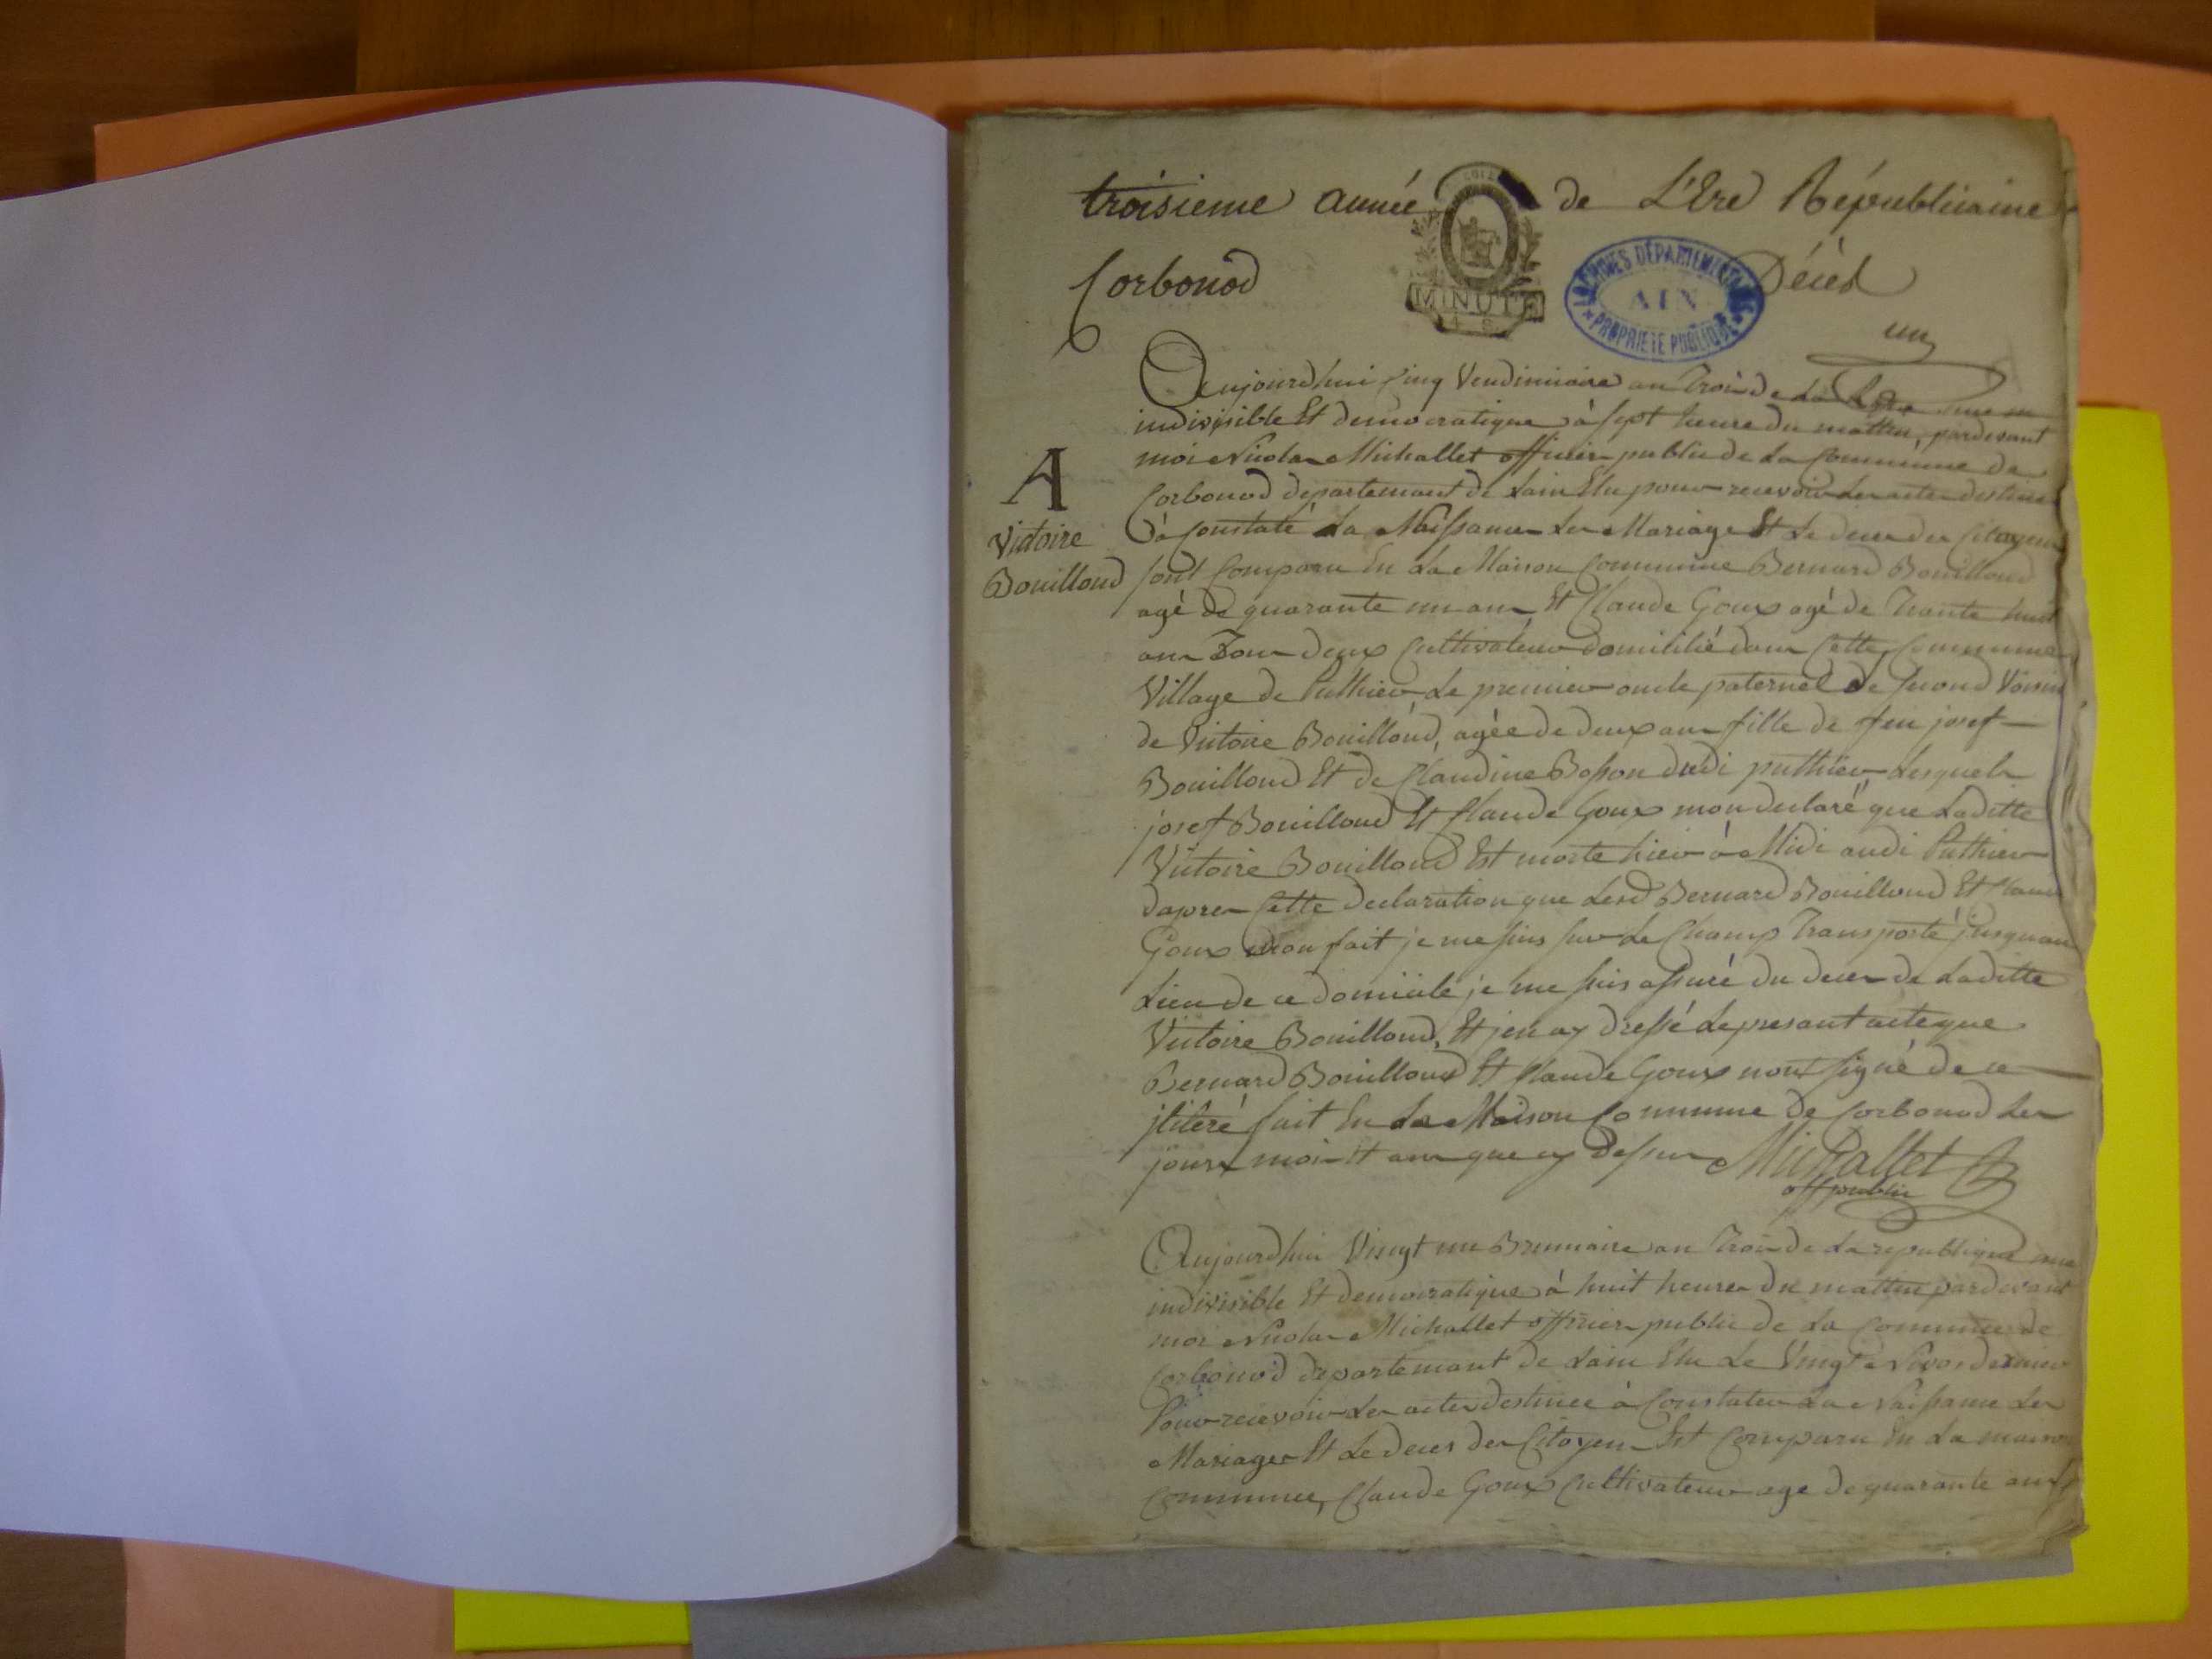 troisieme année de L'Ere Républicaine
Corbonod Décès
MINUTE
ARCHIVES DÉPARTEMENTALES
AIN
PROPRIETE PUBLIQUE
un
Aujourdhui Cinq Vendimiaire an Trois de La
indivisible Et democratique à sept heure du mattin, pardevant
moi Nicolas Michallet officier public de La Commune de
A
Corbonod departemant de Lain Elu pour recevoir les actes destine
Victoire
à Constaté La Naissance Les Mariage Et Le deces des Citoyens
Bouilloud
sont Comparu En La Maison Commune Bernard Bouilloud
agé de quarante un ans Et Claude Goux agé de Trante huit
ans Tous deux Cultivateur domicilié dans Cette Commune
Village de Puthier Le premier oncle paternel Le second Voisin
de Victoire Bouilloud, agée de deux ans fille de feu josef
Bouilloud Et de Claudine Bosson dudi puthier Lesquels
josef Bouilloud Et Claude Goux mon declaré que Laditte
Victoire Bouilloud Est morte hier à Midi audi Puthier
dapres Cette declaration que Lesd Bernard Bouilloud Et Claude
Goux mon fait je me suis sur Le Champ Transporté jusquau
Lieu de ce domicile je me suis assuré du deces de Laditte
Victoire Bouilloud, Et jen ay dressé Le presant acte que
Bernard Bouilloud Et Claude Goux nont signé de ce
jlileré fait En La Maison Commune de Corbonod Les
jours mois Et ans que cy dessus Michallet
off public
Aujourdhui Vingt un Brumaire an Trois de La republique une
indivisible Et democratique à huit heures du mattin pardevant
moi Nicolas Michallet officier public de La Commune de
Corbonod departemant de Lain Elu Le Vingt Nivos dernier
Pour recevoir Les actes destinee à Constater La Naissance Les
Mariages Et Le deces des Citoyens Est Comparu En La maison
Commune, Claude Goux Cultivateur age de quarante ans